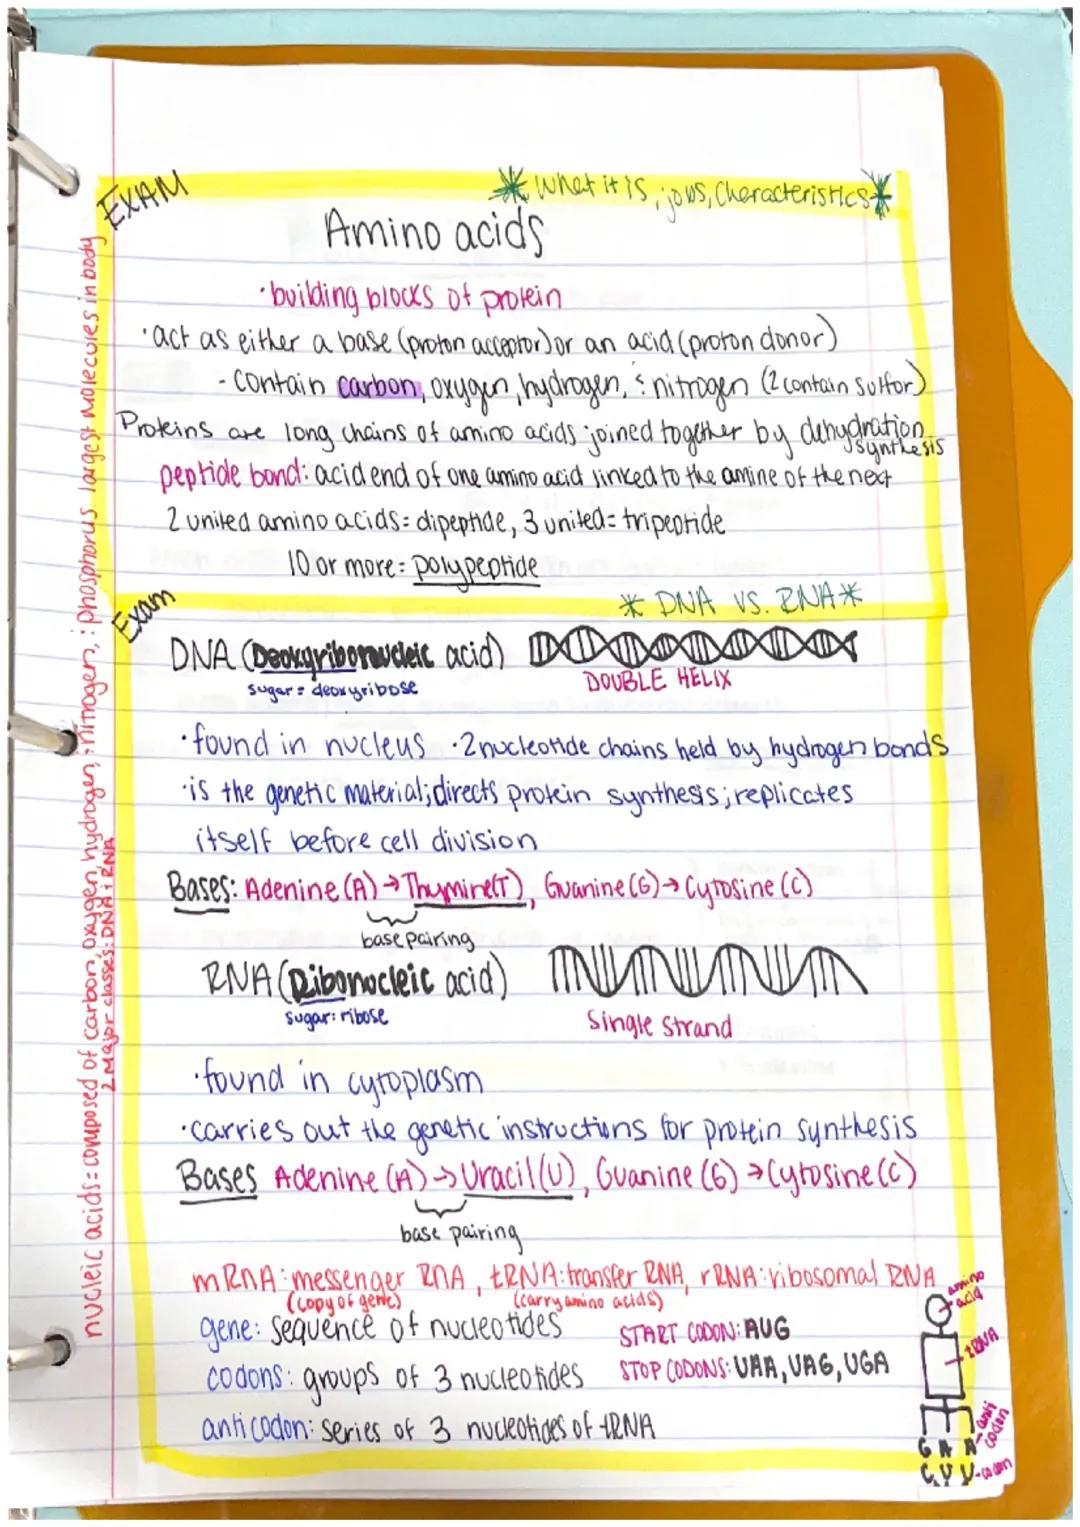 EXAM
*What it is, jobs, Characteristics*
Amino acids
·building blocks of protein
·act as either a base (proton acceptor) or an acid (proton donor)
- contain carbon, oxygen, hydrogen, & nitrogen (2 contain sulfor)
Proteins are long chains of amino acids joined together by dehydration synthesis
peptide bond: acid end of one amino acid linked to the amine of the next
2 united amino acids = dipeptide, 3 united = tripeptide
10 or more = polypeptide
Exam
* DNA VS. RNA *
DNA (Deoxyribonucleic acid)
sugar = deoxyribose
DOUBLE HELIX
·found in nucleus ·2 nucleotide chains held by hydrogen bonds
·is the genetic material; directs protein synthesis; replicates
itself before cell division
Bases: Adenine (A) → Thymine (T), Guanine (G) → Cytosine (C)
base pairing
RNA (Ribonucleic acid)
sugar: ribose
Single strand
·found in cytoplasm
·carries out the genetic instructions for protein synthesis
Bases Adenine (A) → Uracil (U), Guanine (G) → Cytosine (C)
base pairing
mRNA: messenger RNA, tRNA: transfer RNA, rRNA: ribosomal RNA
(copy of gene) (carry amino acids)
gene: sequence of nucleotides START CODON: AUG
codons: groups of 3 nucleotides STOP CODONS: UAA, UAG, UGA
anticodon: series of 3 nucleotides of tRNA
amino acid
tRNA
anti codon
G A A
C U U - codon
nucleic acids = composed of carbon, oxygen, hydrogen, nitrogen, & phosphorus largest molecules in body
2 Major classes: DNA & RNA